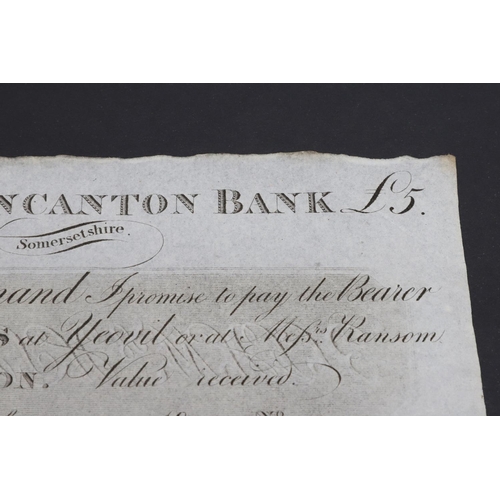 NCANTON BANK £5.
Somersetshire.
mand I promise to pay the Bearer
s at Yeovil or at Meſsrs. Ransom
ON. Value received.